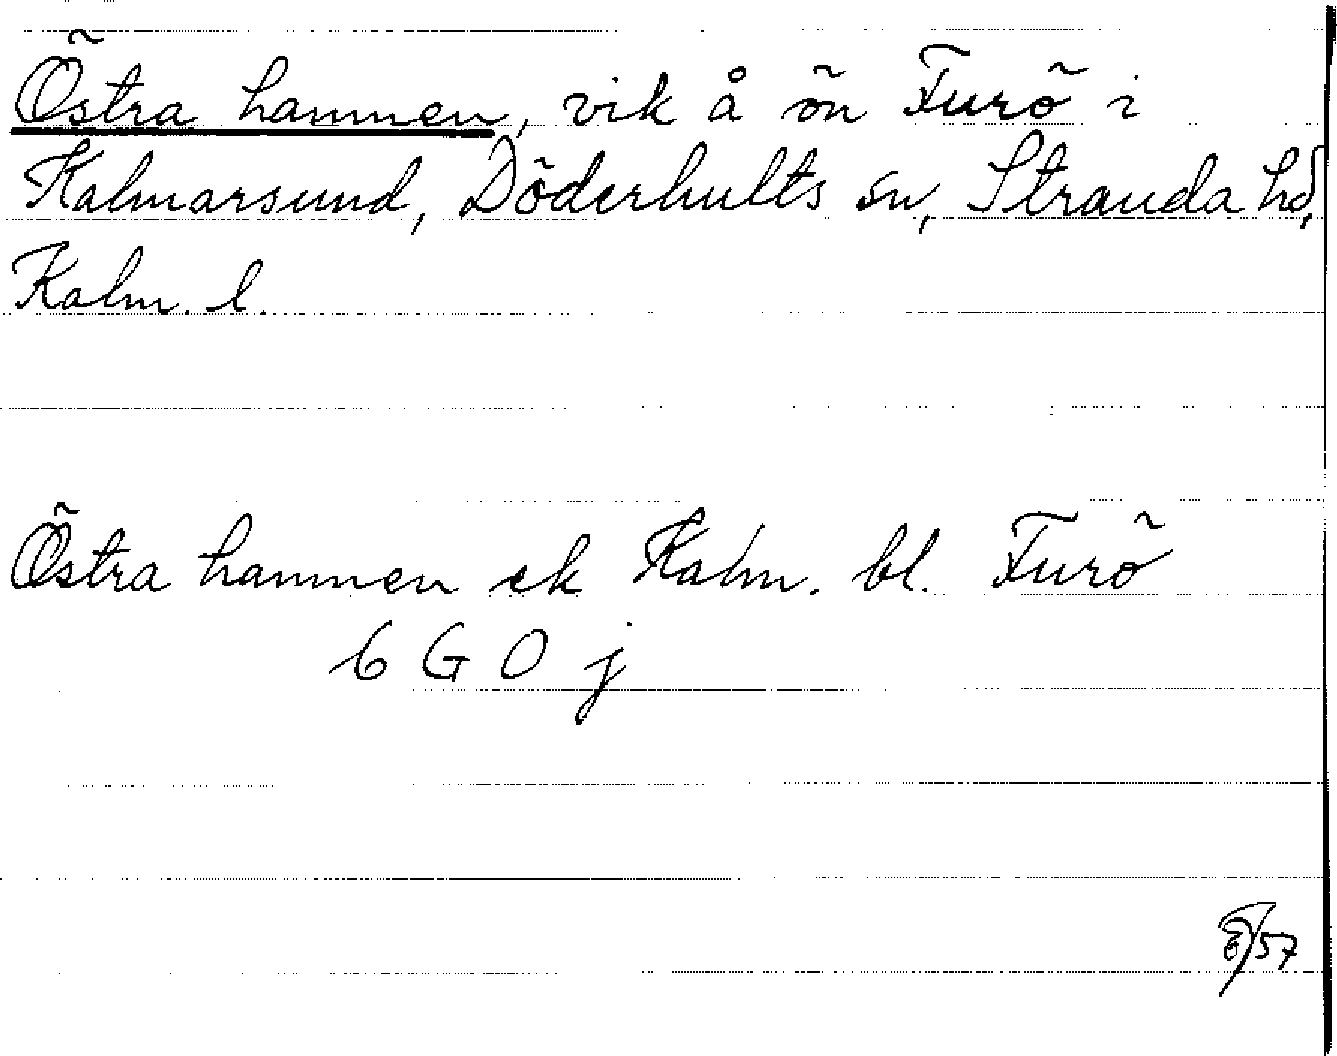 Östra hamnen, vik å ön Furö i
Kalmarsund, Döderhults sn, Stranda hd,
Kalm. l.
Östra hamnen ek Kalm. bl. Furö
6 G O j
/57